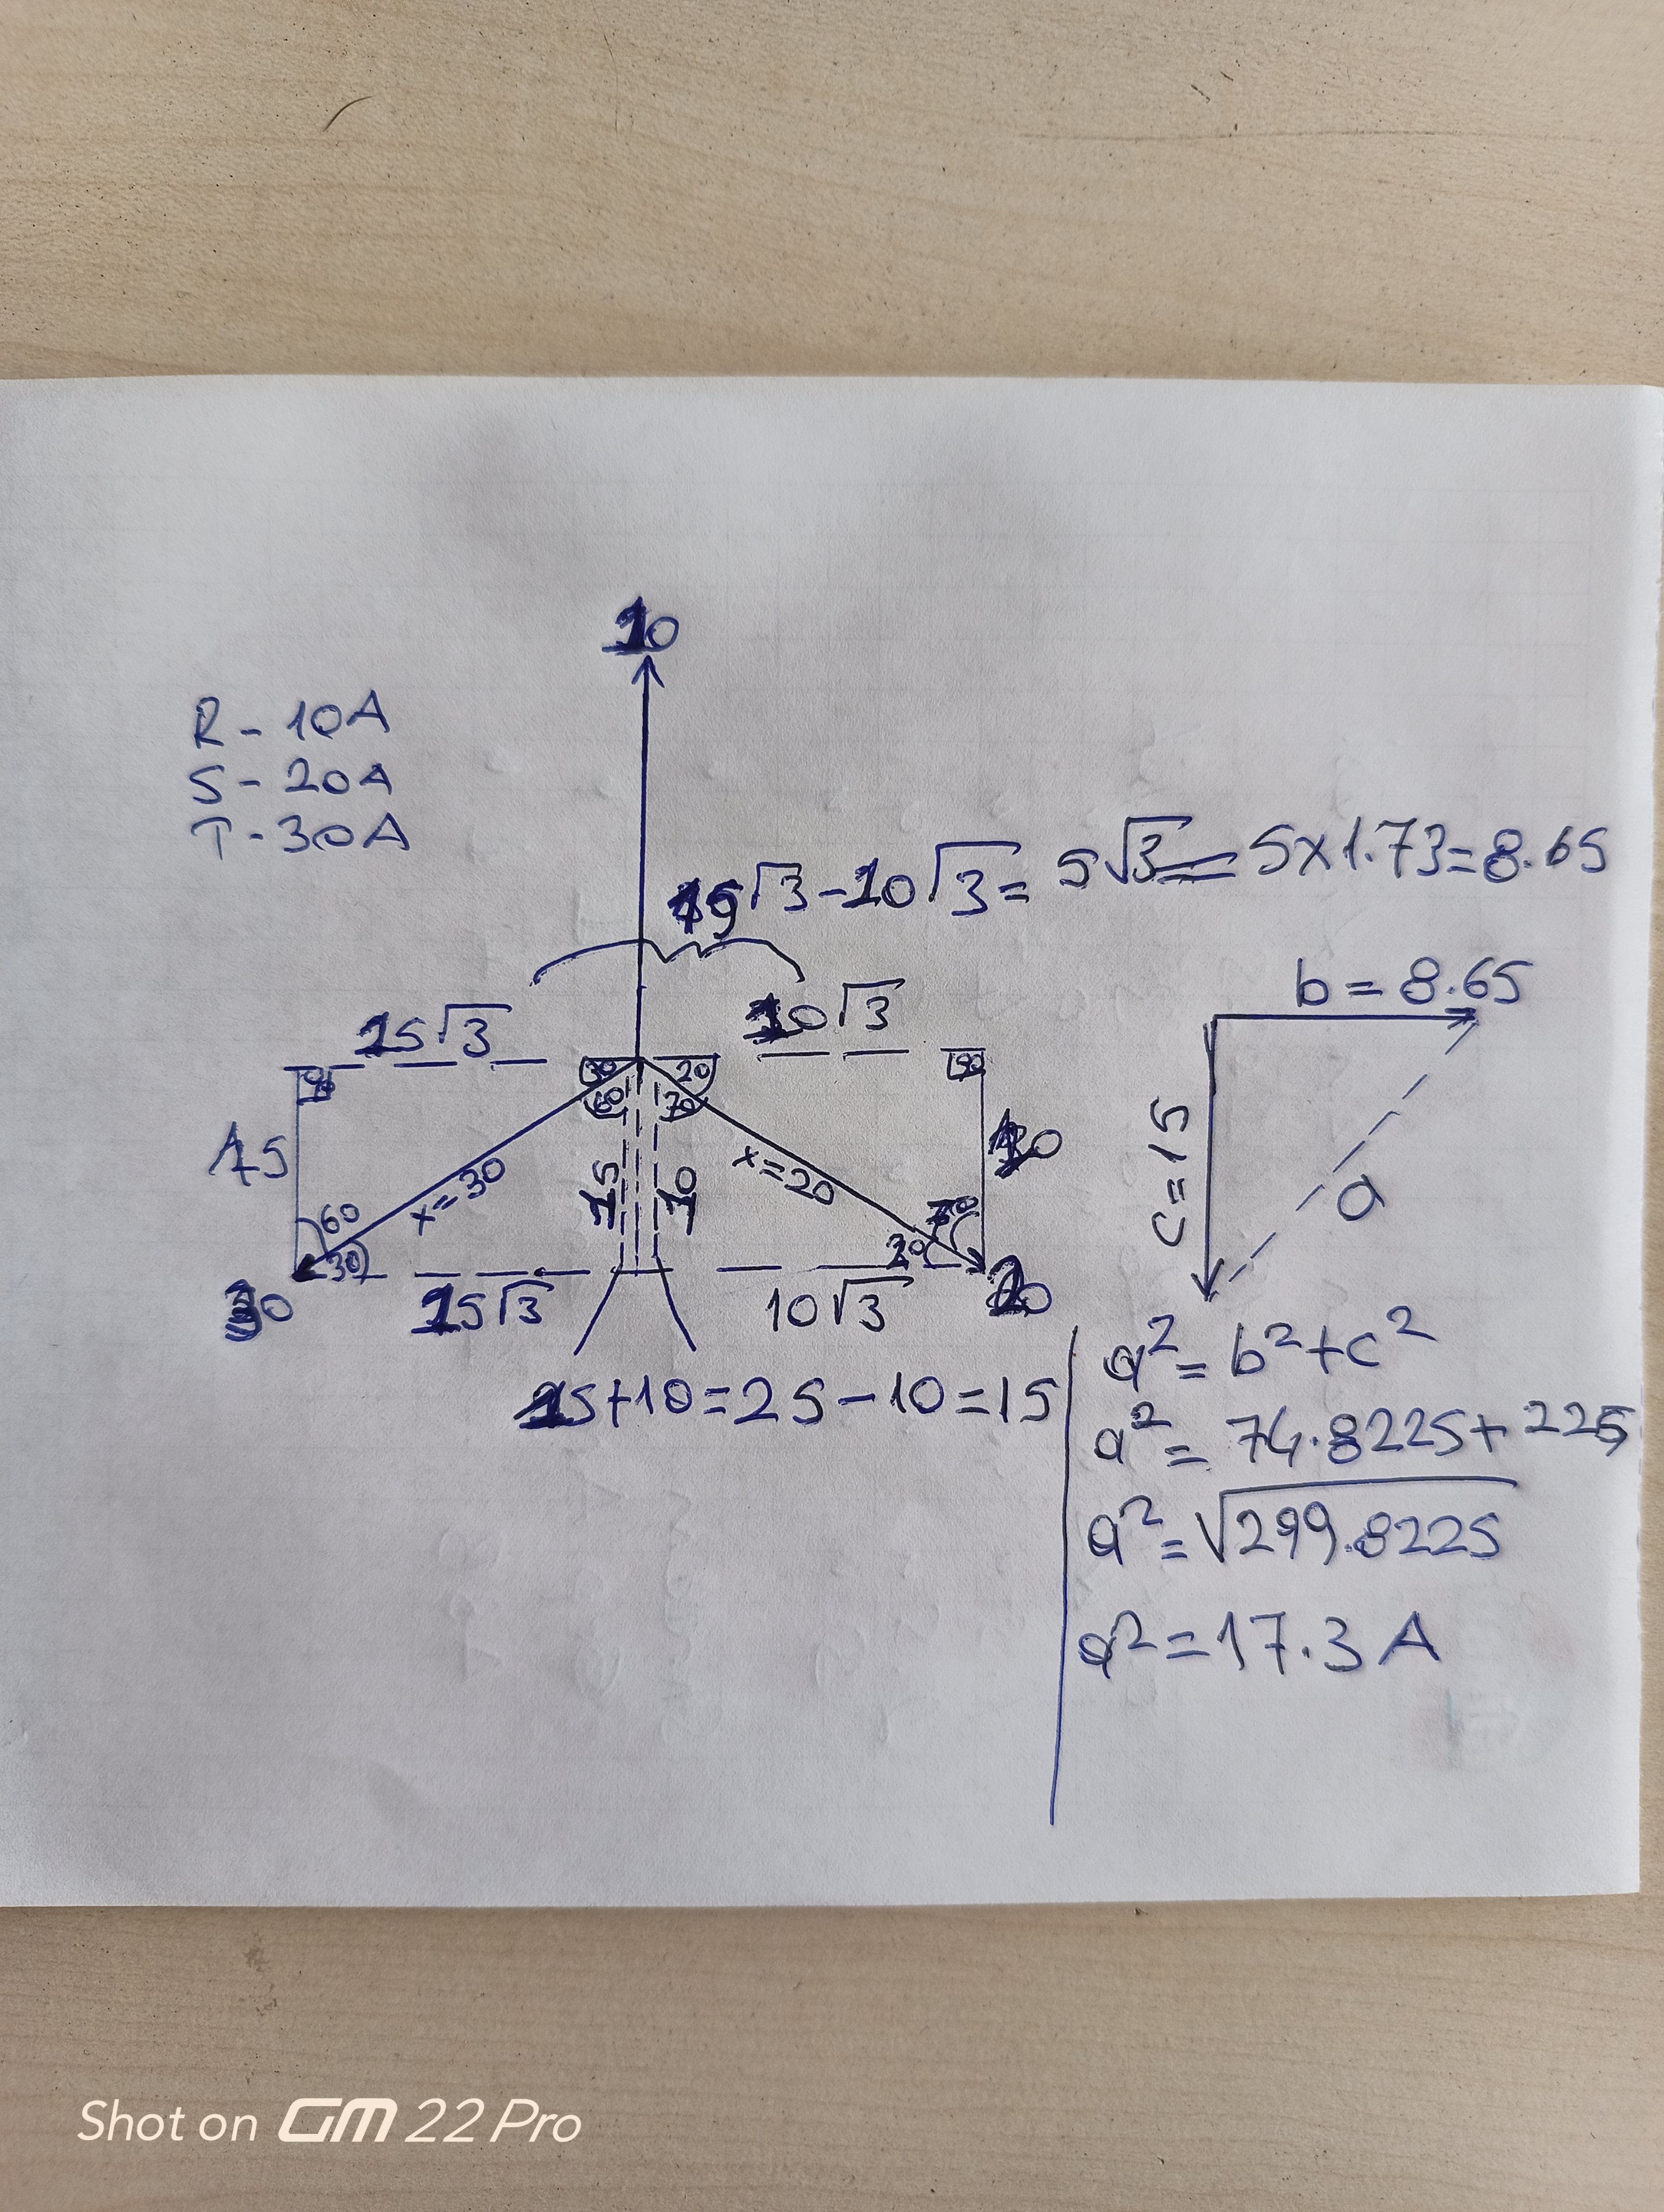 10
R - 10A
S - 20A
T - 30A
15√3 - 10√3 = 5√3 = 5x1.73=8.65
15√3
10√3
b = 8.65
90
30
20
90
60
70
15
x=30
15
10
x=20
10
c=15
a
60
30
20
30
15√3
10√3
20
15+10=25-10=15
a²= b²+c²
a²= 74.8225+225
a²=√299.8225
a²=17.3 A
Shot on GM 22 Pro